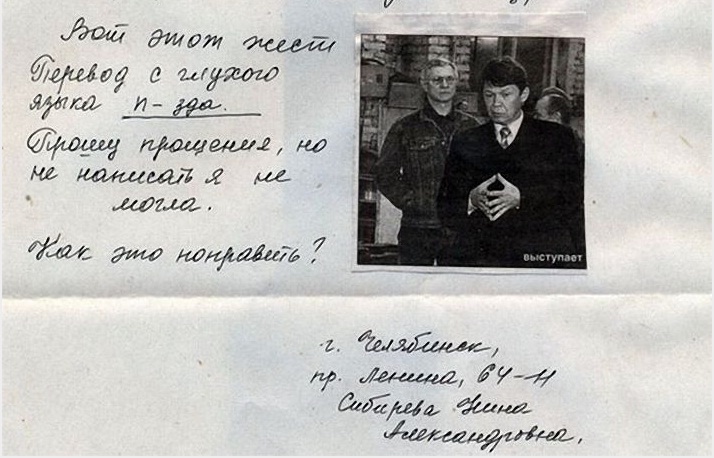 Вот этот жест
Перевод с глухого
языка п-зда.
Прошу прощения, но
не написать я не
могла.
Как это поправить?
выступает
г. Челябинск,
пр. Ленина, 64-11
Сибирева Нина
Александровна.